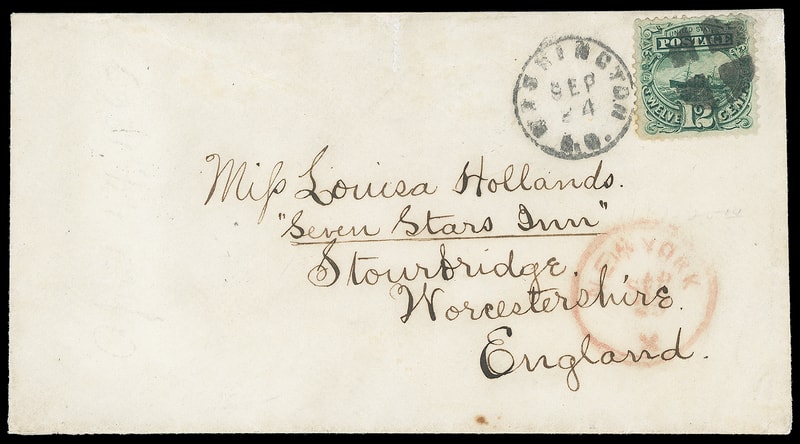 WASHINGTON
SEP
24
D.C.
UNITED STATES
POSTAGE
TWELVE CENTS
12
Miſs Louisa Hollands.
"Seven Stars Inn"
Stourbridge.
Worcestershire.
England.
NEW YORK
SEP